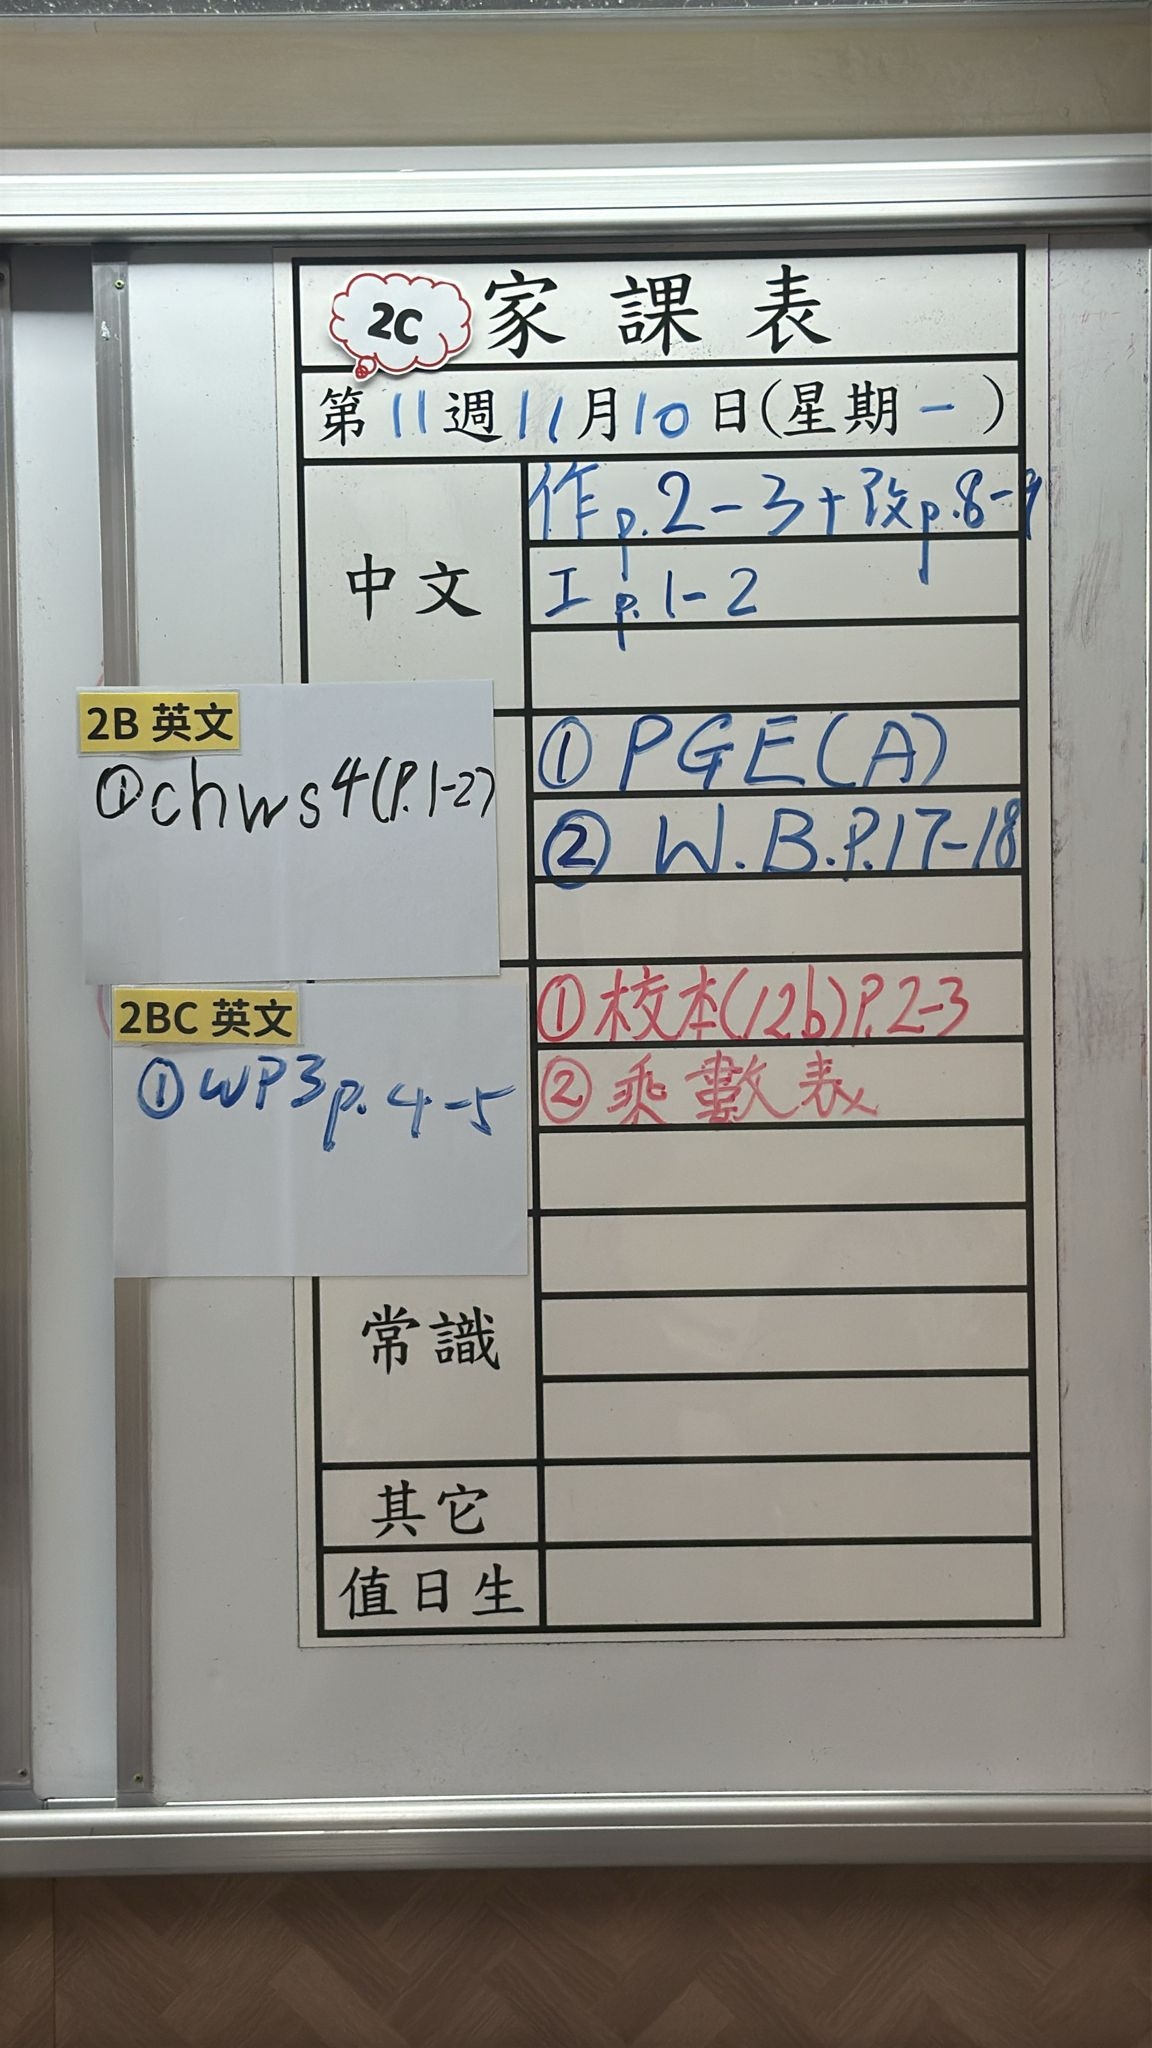 2C 家課表
第11週11月10日(星期一)
中文
作p.2-3+改p.8-9
工p.1-2
2B 英文
①chws4(P.1-2)
①PGE(A)
②W.B.P.17-18
2BC 英文
①WP3p.4-5
①校本(12b)P.2-3
②乘數表
常識
其它
值日生